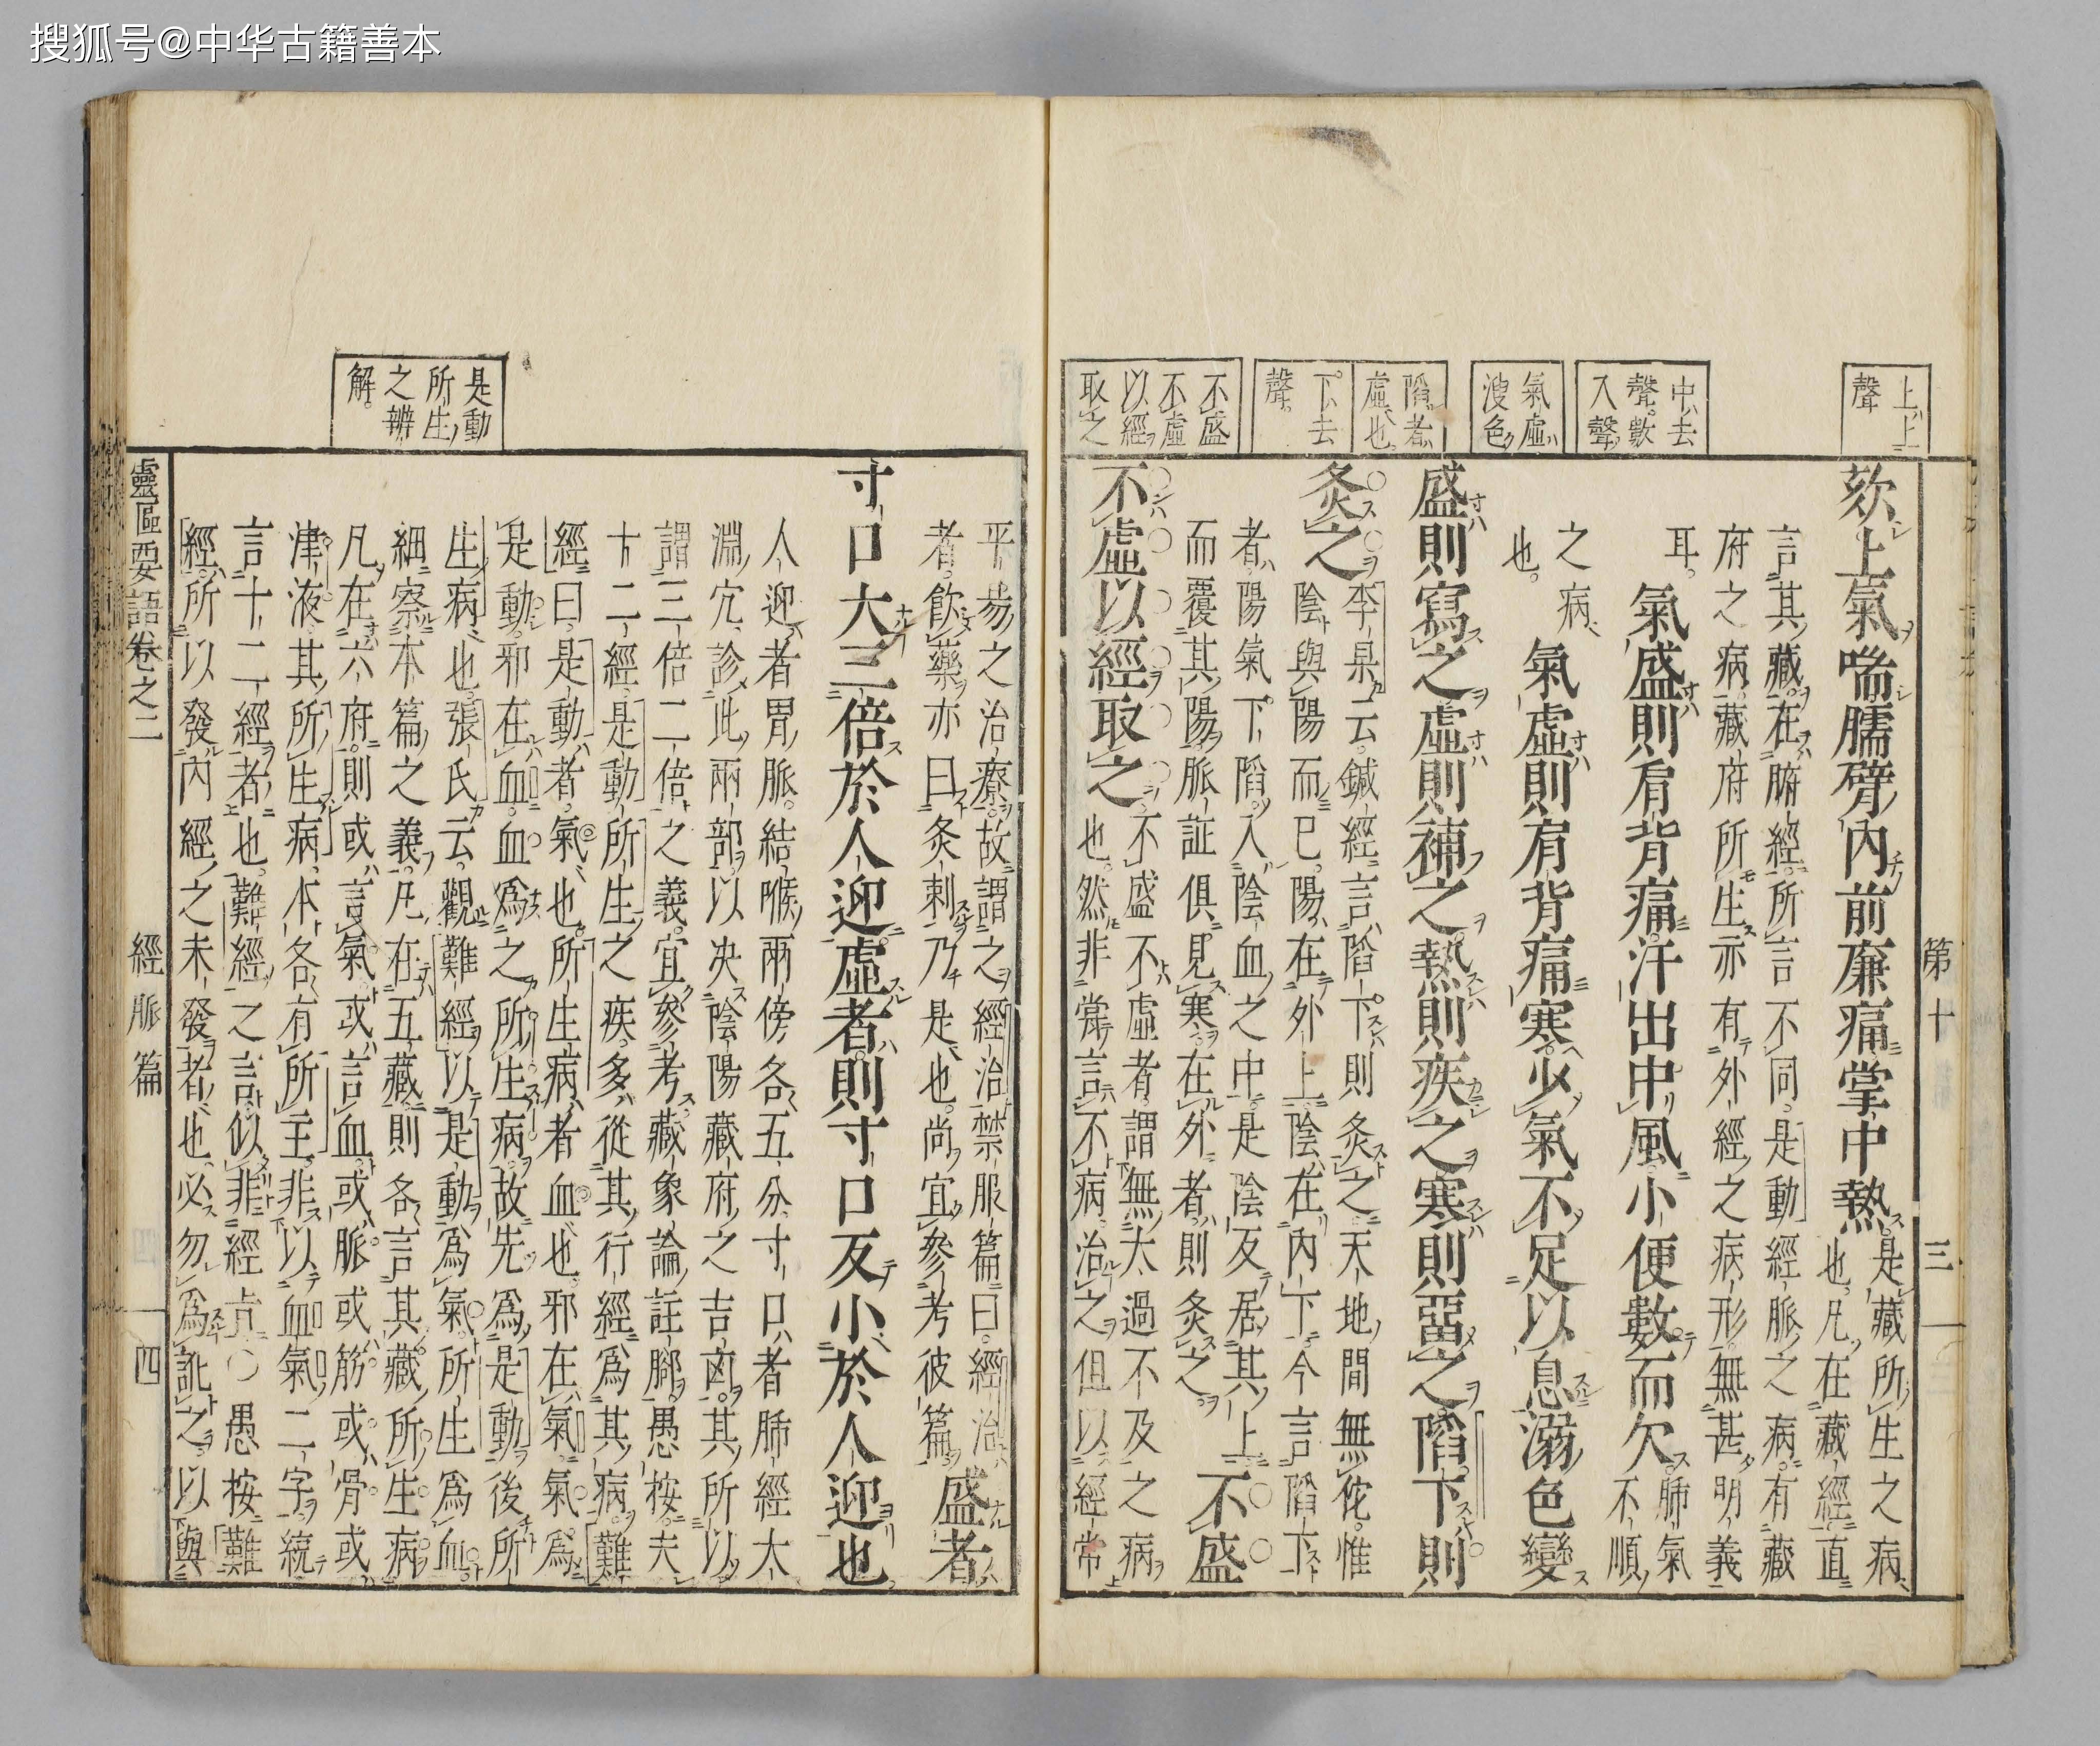 搜狐号@中华古籍善本
上上
聲
中去
聲數
入聲
氣虛
溲色
陷者
虛也
下去
聲
不盛
不虛
以經
取之
第十
三
欬上氣喘臑臂內前廉痛掌中熱是藏所生之病
也凡在藏經直
言其藏在腑經所言不同是動經脈之病有藏
府之病藏府所生亦有外經之病形無甚明義
耳
氣盛則肩背痛汗出中風小便數而欠肺氣
不順
之病
也
氣虛則肩背痛寒少氣不足以息溺色變
盛則寫之虛則補之熱則疾之寒則畱之陷下則
灸之李杲云鍼經言陷下則灸之天地間無佗惟
陰與陽而已陽在外上陰在內下今言陷下
者陽氣下陷入陰血之中是陰反居其上
而覆其陽脈証俱見寒在外者則灸之不盛
不虛以經取之不盛不虛者謂無太過不及之病
也然非常言不病治之但以經常
平易之治療故謂之經治禁服篇曰經治
者飲藥亦曰灸刺乃是也尚宜參考彼篇盛者
寸口大三倍於人迎虛者則寸口反小於人迎也
人迎者胃脈結喉兩傍各五分寸口者肺經太
淵穴診此兩部以決陰陽藏府之吉凶其所以
謂三倍二倍之義宜參考藏象論註腳愚按夫
十二經是動所生之疾多從其行經爲其病難
經曰是動者氣也所生病者血也邪在氣氣爲
是動邪在血血爲之所生病故先爲是動後所
生病也張氏云觀難經以是動爲氣所生爲血
細察本篇之義凡在五藏則各言其藏所生病
凡在六府則或言氣或言血或脈或筋或骨或
津液其所生病本各有所主非以血氣二字統
言十二經者也難經之言似非經旨○愚按難
經所以發內經之未發者也必勿爲訛之以與
是動
所生
之辨
解
靈區要語卷之二
經脈篇
四